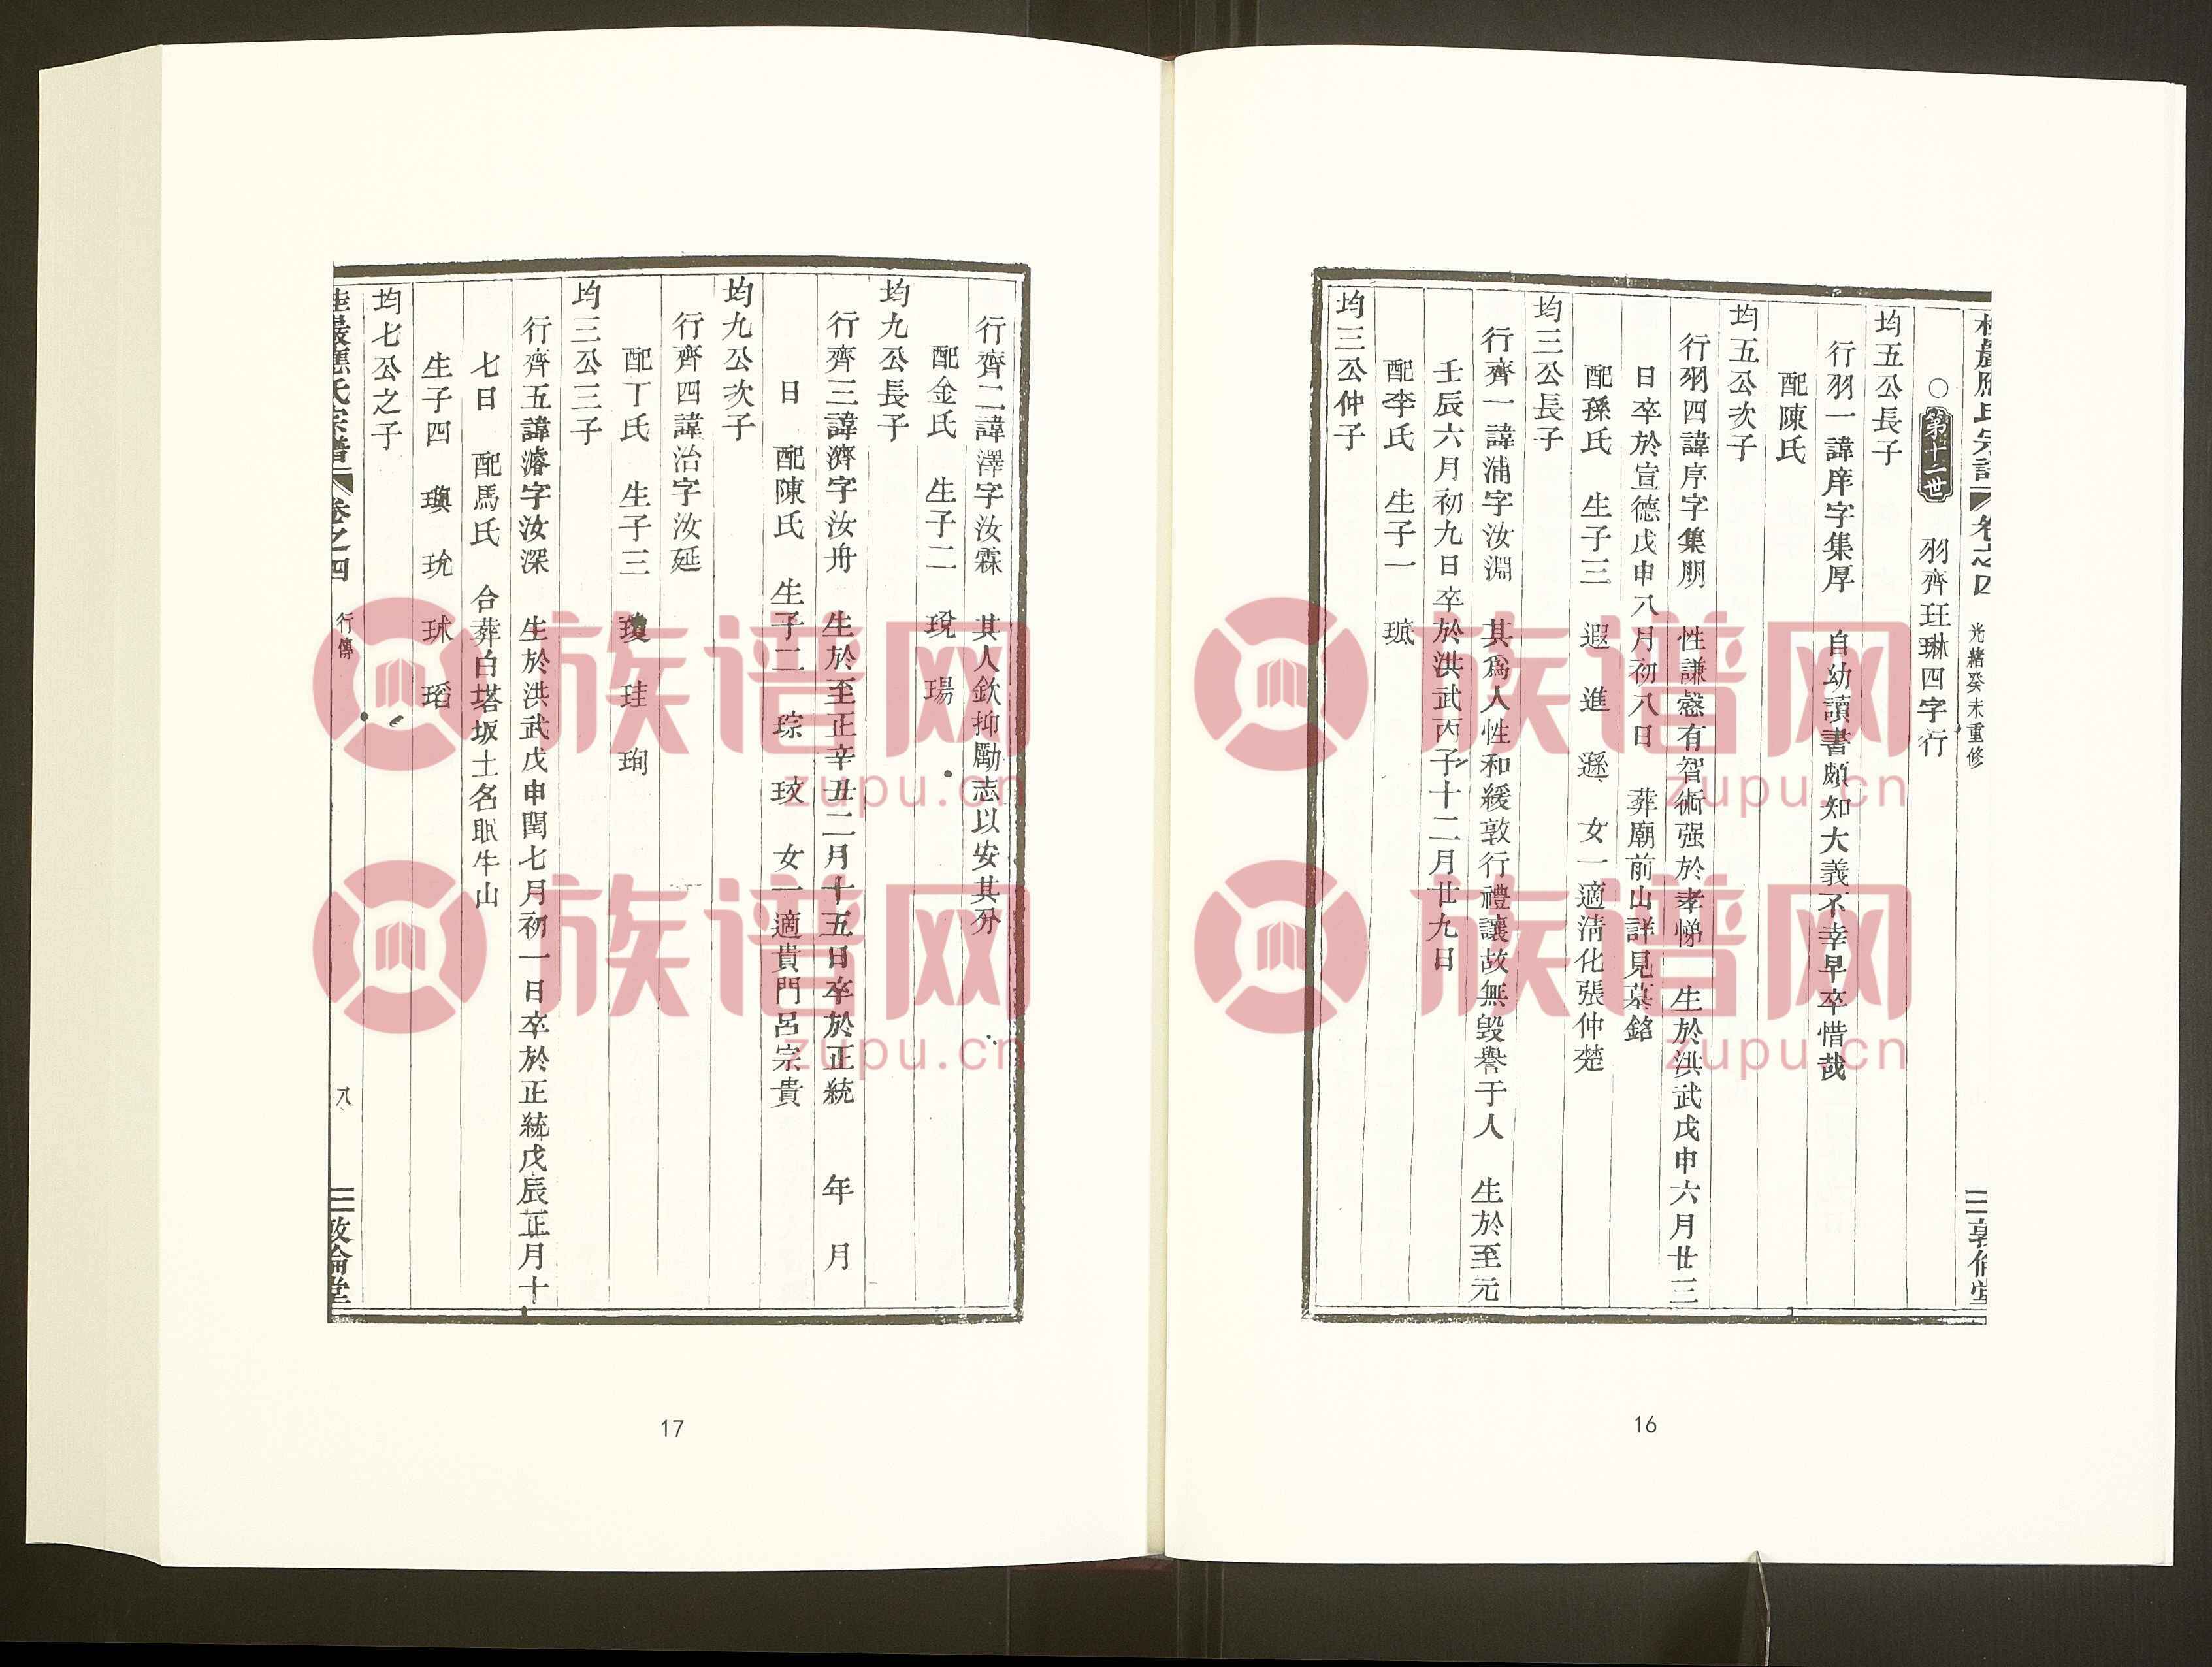 桂巖應氏宗譜 卷之四 光緒癸未重修 敦倫堂
○第十一世 羽齊玨琳四字行
均五公長子
行羽一諱庠字集厚 自幼讀書頗知大義不幸早卒惜哉
配陳氏
均五公次子
行羽四諱序字集朋 性謙愨有智術强於孝悌 生於洪武戊申六月廿三
日卒於宣德戊申八月初八日 葬廟前山詳見墓銘
配孫氏 生子三 遐 進 遜 女一適淸化張仲楚
均三公長子
行齊一諱浦字汝淵 其爲人性和緩敦行禮讓故無毀譽于人 生於至元
壬辰六月初九日卒於洪武丙子十二月廿九日
配李氏 生子一 琥
均三公仲子
16
行齊二諱澤字汝霖 其人欽抑勵志以安其分
配金氏 生子二 琓 瑒
均九公長子
行齊三諱濟字汝舟 生於至正辛丑二月十五日卒於正統 年 月
日 配陳氏 生子二 琮 玟 女一適貴門呂宗貴
均九公次子
行齊四諱治字汝延
配丁氏 生子三 瓊 珪 珣
均三公三子
行齊五諱濬字汝深 生於洪武戊申閏七月初一日卒於正統戊辰正月十
七日 配馬氏 合葬白塔坂土名眠牛山
生子四 璵 珫 球 瑫
均七公之子
桂巖應氏宗譜 卷之四 行傳 八 敦倫堂
17
族谱网
zupu.cn
族谱网
zupu.cn
族谱网
zupu.cn
族谱网
zupu.cn